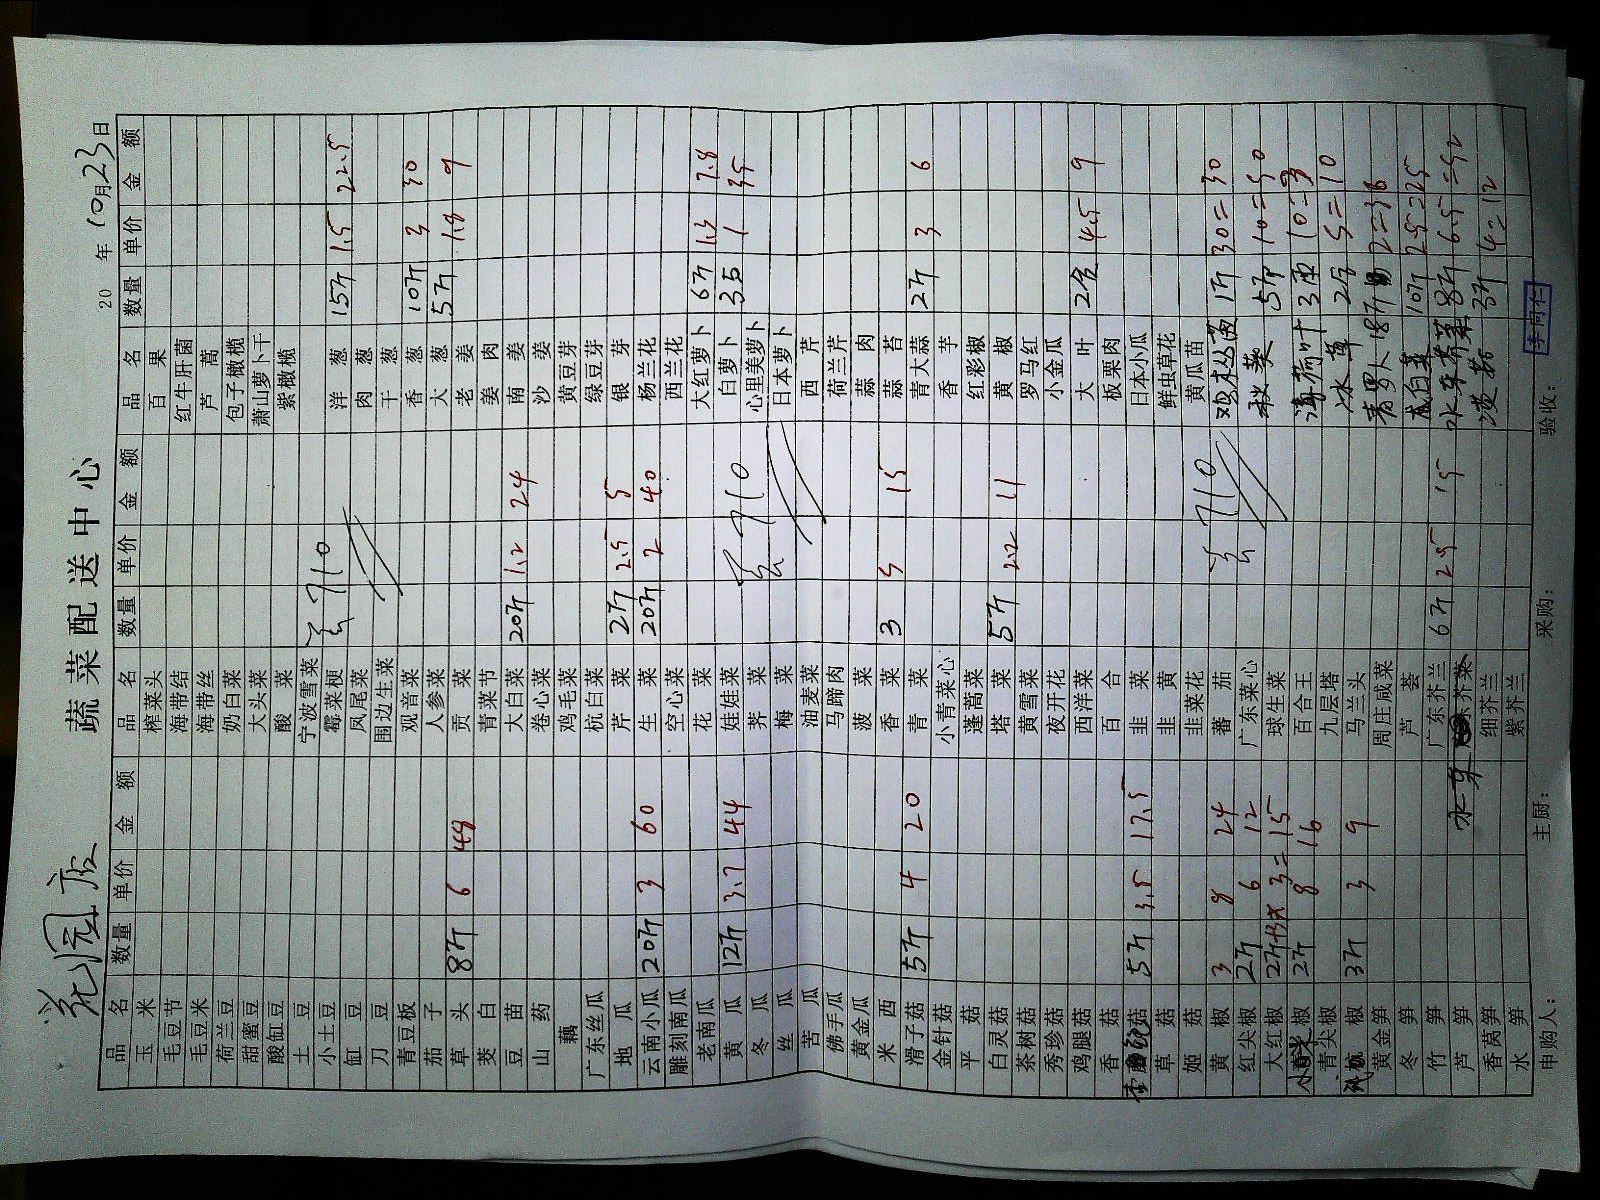 花园店
蔬菜配送中心
20 年10月23日
品名 数量 单价 金额 品名 数量 单价 金额 品名 数量 单价 金额
玉米 榨菜头 百果
毛豆节 海带结 红牛肝菌
毛豆米 海带丝 芦蒿
荷兰豆 奶白菜 包子橄榄
甜蜜豆 大头菜 萧山萝卜干
酸缸豆 酸菜 紫橄榄
土豆 宁波雪菜
小土豆 霉菜梗 710 洋葱 15斤 1.5 22.5
缸豆 凤尾菜 肉葱
刀豆 围边生菜 干葱
青豆板 观音菜 香葱 10斤 3 30
茄子 人参菜 大葱 5斤 1.8 9
草头 8斤 6 48 贡菜 老姜
茭白 青菜节 姜肉
豆苗 大白菜 20斤 1.2 24 南姜
山药 卷心菜 沙姜
藕 鸡毛菜 黄豆芽
广东丝瓜 杭白菜 绿豆芽
地瓜 芹菜 2斤 2.5 5 银芽
云南小瓜 20斤 3 60 生菜 20斤 2 40 杨兰花
雕刻南瓜 空心菜 西兰花
老南瓜 花菜 大红萝卜 6斤 1.3 7.8
黄瓜 12斤 3.7 44 娃娃菜 710 白萝卜 35 1 35
冬瓜 荠菜 心里美萝卜
丝瓜 梅菜 日本萝卜
苦瓜 油麦菜 西芹
佛手瓜 马蹄肉 荷兰芹
黄金瓜 菠菜 蒜肉
米西 香菜 3 5 15 蒜苔
滑子菇 5斤 4 20 青菜 青大蒜 2斤 3 6
金针菇 小青菜心 香芋
平菇 蓬蒿菜 红彩椒
白灵菇 塔菜 5斤 2.2 11 黄椒
茶树菇 黄雪菜 罗马红
秀珍菇 夜开花 小金瓜
鸡腿菇 西洋菜 大叶 2盒 4.5 9
香菇 百合 板栗肉
菇 5斤 3.5 17.5 韭菜 日本小瓜
草菇 韭黄 鲜虫草花
姬菇 韭菜花 黄瓜苗
黄椒 3 8 24 蕃茄 710 鸡枞菌 1斤 30=30
红尖椒 2斤 6 12 广东菜心 秋葵 5斤 10=50
大红椒 2斤 3=15 球生菜
小米椒 2斤 8 16 百合王 薄荷叶 3 10=3
青尖椒 九层塔 冰草 2 5=10
椒 3斤 3 9 马兰头 青罗卜 18斤 2=36
黄金笋 周庄咸菜
冬笋 芦荟 10斤 2.5=25
竹笋 广东芥兰 6斤 2.5 15 水东芥菜 8斤 6.5=52
芦笋 水东芥菜 3斤 4=12
香莴笋 细芥兰
水笋 紫芥兰
申购人: 主厨: 采购: 验收: